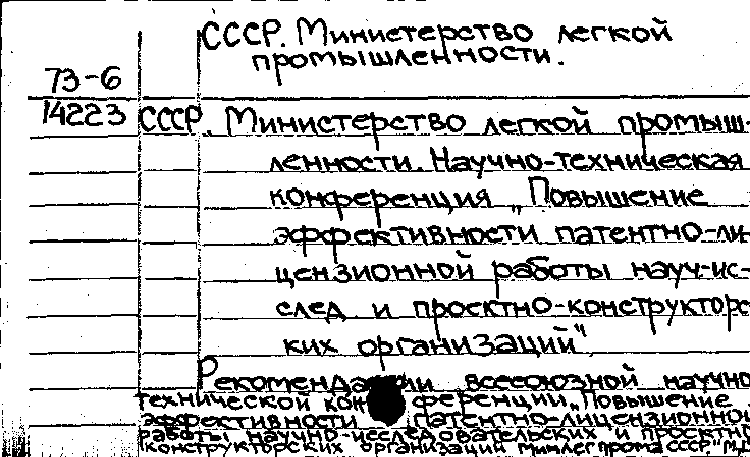 СССР. Министерство легкой
промышленности.
73-6
14223 СССР. Министерство легкой промыш-
ленности. Научно-техническая
конференция „Повышение
эффективности патентно-ли-
цензионной работы науч-ис-
след и проектно-конструкторс
ких организаций"
Рекомендации всесоюзной научно
технической конференции „Повышение
эффективности патентно-лицензионной
работы научно-исследовательских и проектно
конструкторских организаций минлегпрома СССР. М.,